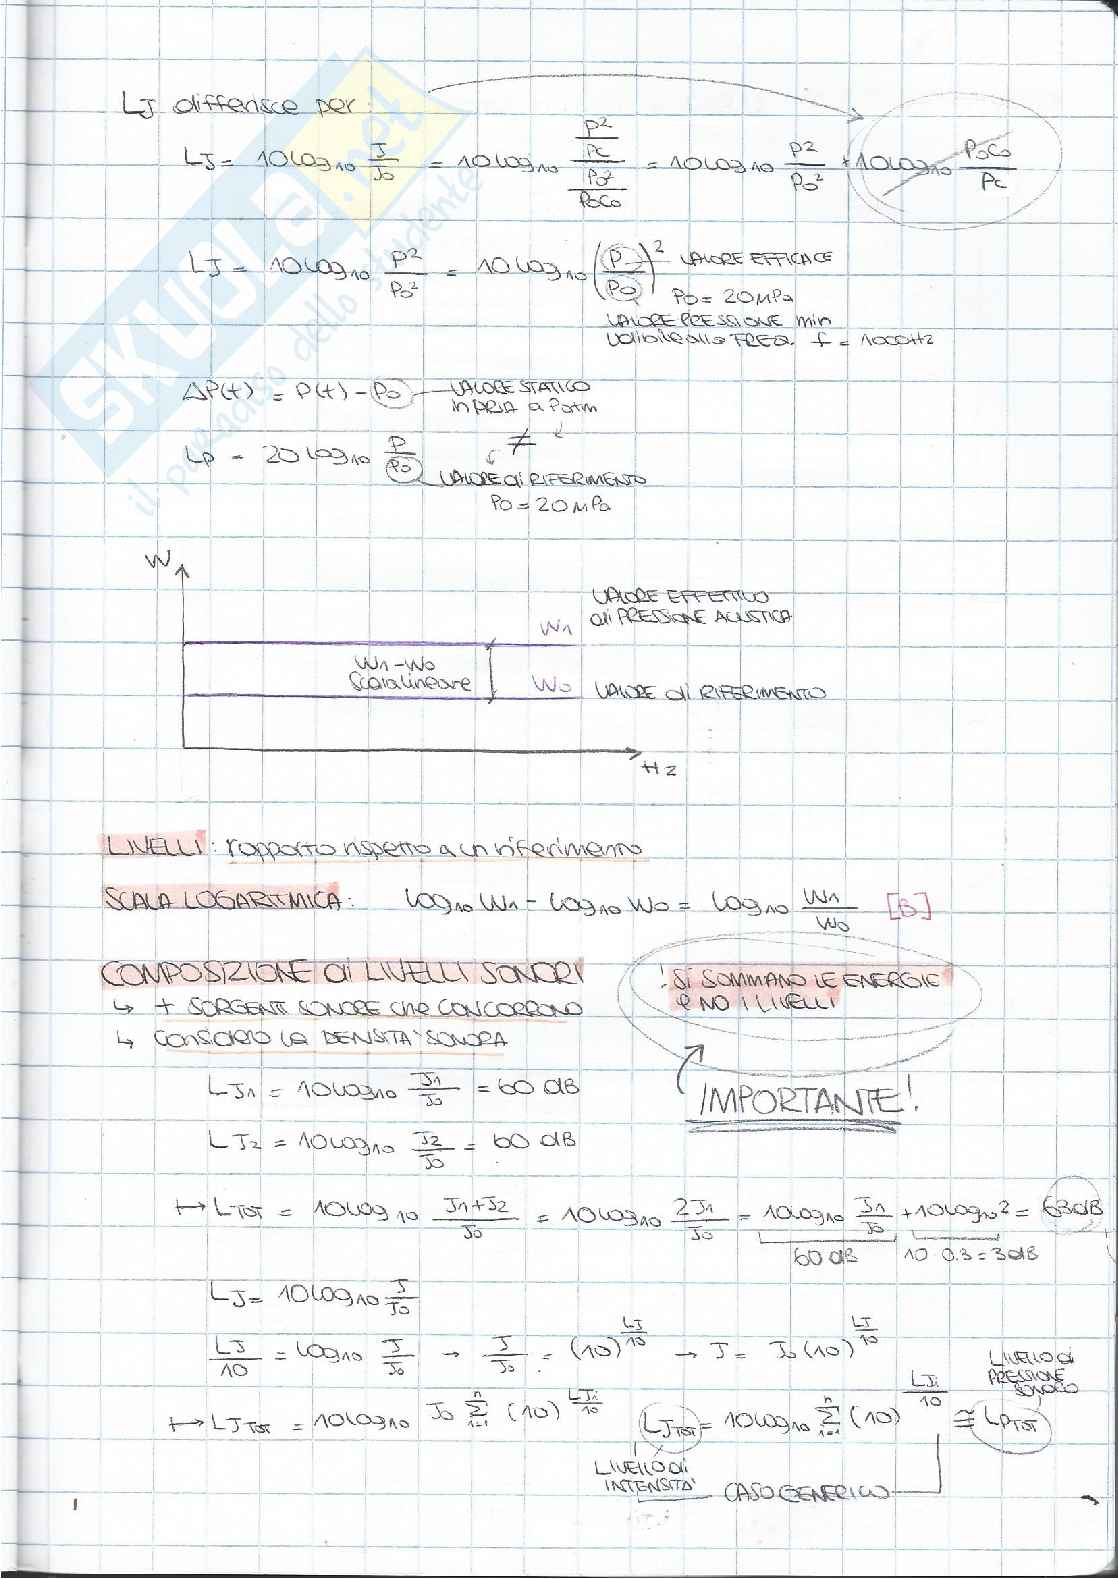 LJ differisce per:
LJ = 10 log10 J/J0 = 10 log10 (P²/ρc)/(P0²/ρ0c0) = 10 log10 P²/P0² + 10 log10 ρ0c0/ρc
LJ = 10 log10 P²/P0² = 10 log10 (P/P0)² VALORE EFFICACE
P0 = 20 μPa
VALORE PRESSIONE min
udibile alla FREQ. f = 1000Hz
ΔP(t) = P(t) - P0 VALORE STATICO
in ARIA a Patm
≠
Lp = 20 log10 P/P0
VALORE di RIFERIMENTO
P0 = 20 μPa
W
VALORE EFFETTIVO
di PRESSIONE ACUSTICA
W1
W1-W0
Scala lineare
W0 VALORE di RIFERIMENTO
Hz
LIVELLI: rapporto rispetto a un riferimento
SCALA LOGARITMICA: log10 W1 - log10 W0 = log10 W1/W0 [B]
COMPOSIZIONE di LIVELLI SONORI
! SI SOMMANO LE ENERGIE
e NO I LIVELLI
↳ + SORGENTI SONORE che CONCORRONO
↳ CONSIDERO LA DENSITA' SONORA
IMPORTANTE!
LJ1 = 10 log10 J1/J0 = 60 dB
LJ2 = 10 log10 J2/J0 = 60 dB
↦ LTOT = 10 log10 (J1+J2)/J0 = 10 log10 2J1/J0 = 10 log10 J1/J0 + 10 log10 2 = 63 dB
60 dB 10 · 0.3 = 3 dB
LJ = 10 log10 J/J0
LJ/10 = log10 J/J0 → J/J0 = (10)^(LJ/10) → J = J0 (10)^(LJ/10)
LIVELLO di
PRESSIONE
SONORO
↦ LJTOT = 10 log10 J0 Σ(i=1, n) (10)^(LJi/10) LJTOT = 10 log10 Σ(i=1, n) (10)^(LJi/10) ≅ LpTOT
LIVELLO di
INTENSITA'
CASO GENERICO
SKUOLA.net
il paradiso dello studente